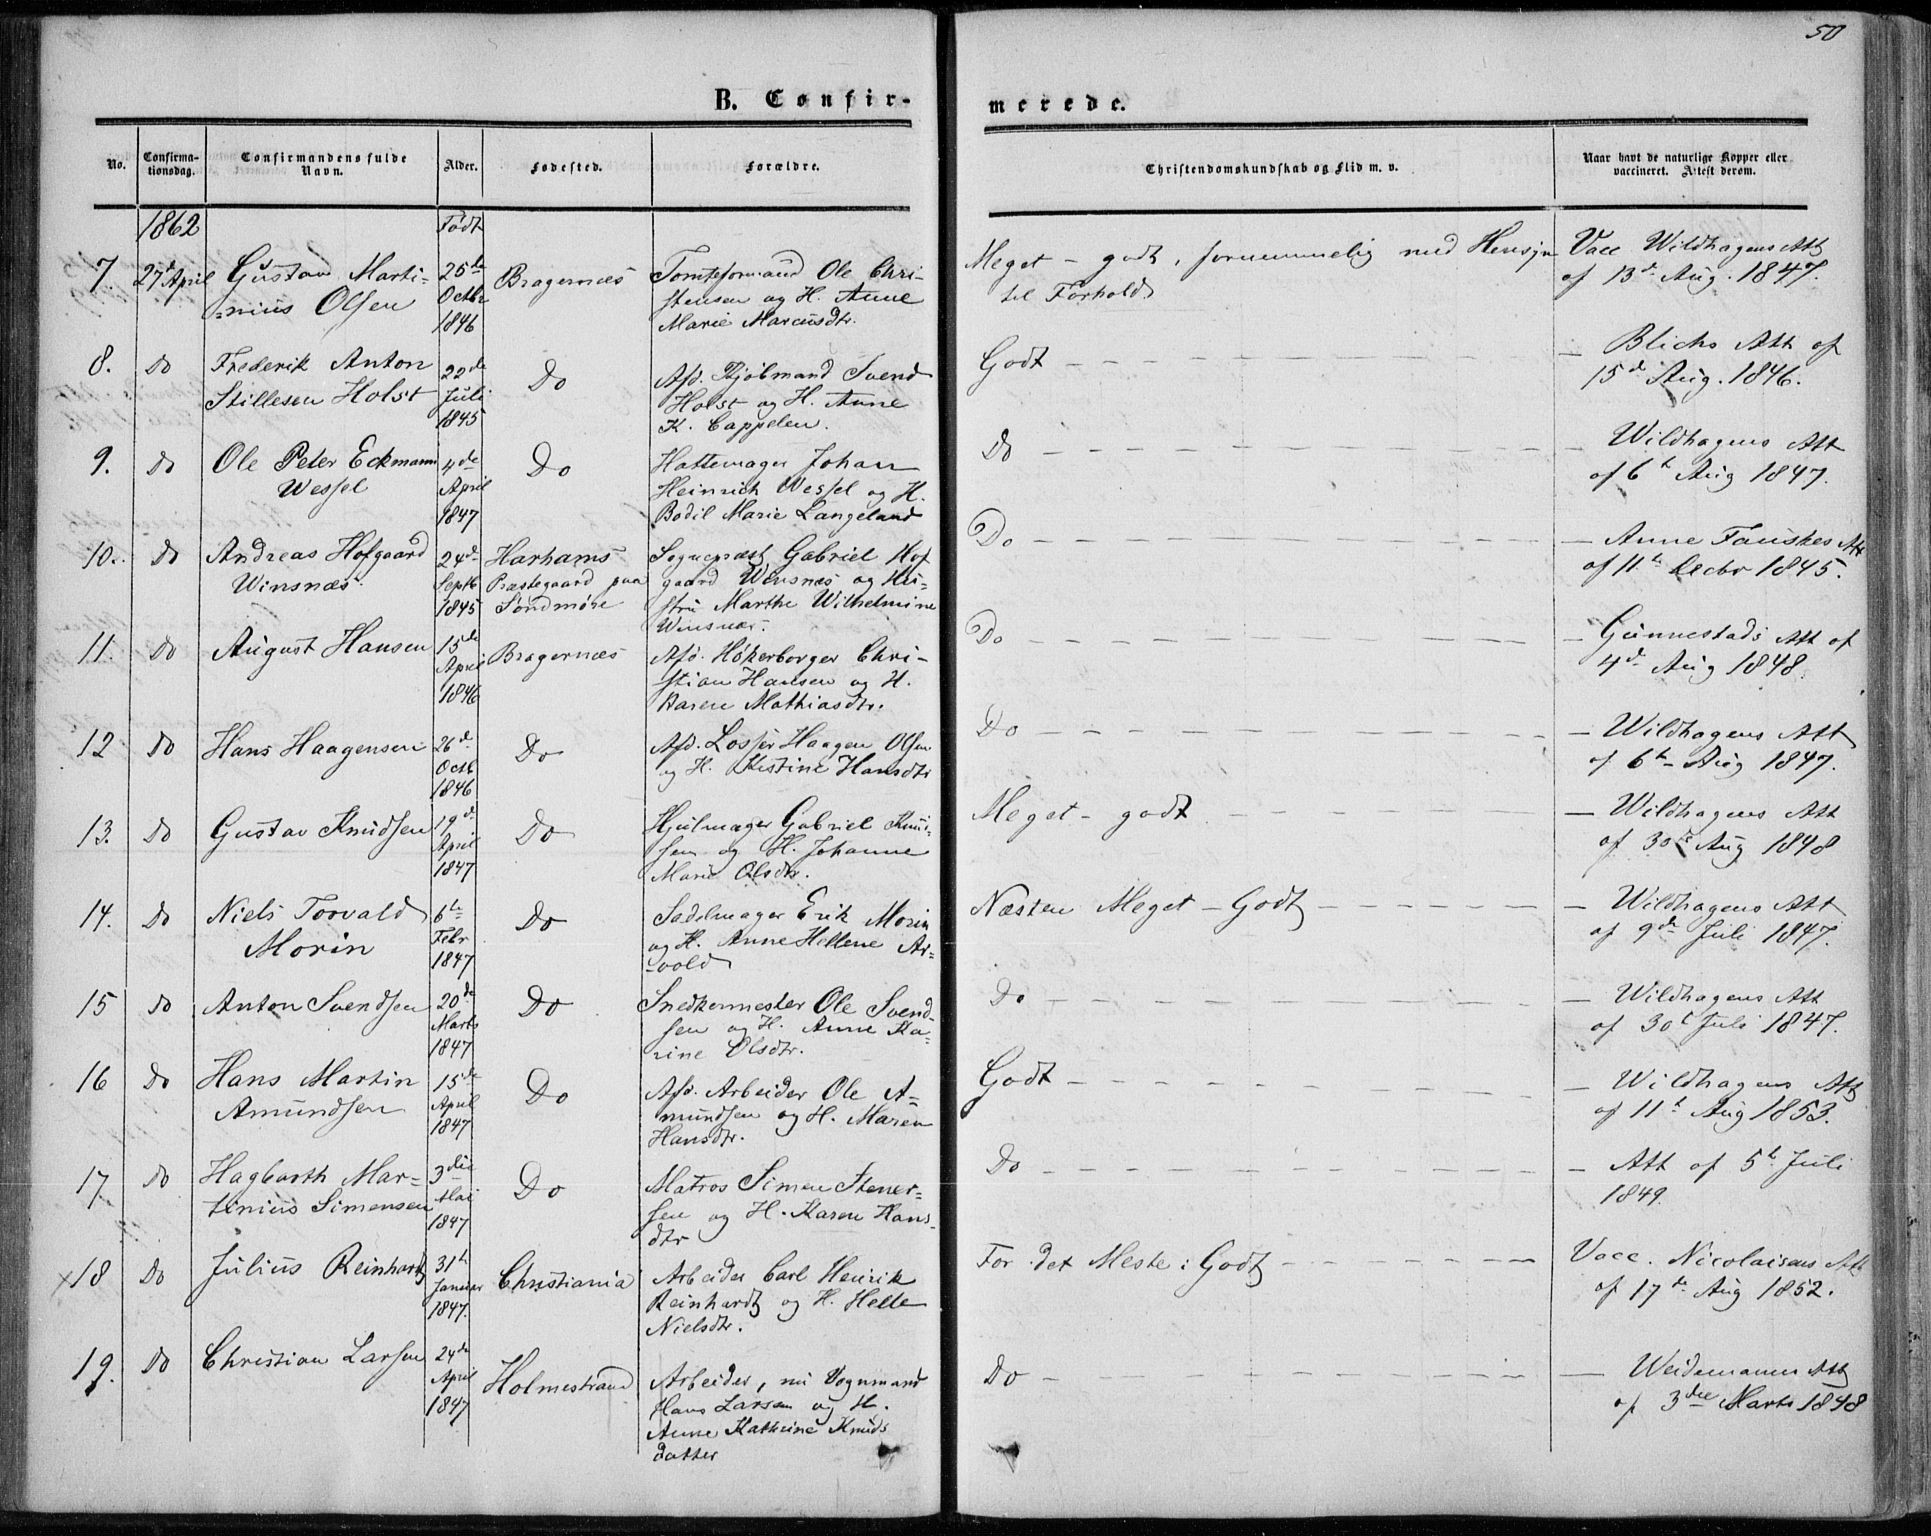 50
B. Confir-
merede.
No.
Confirma-
tionsdag.
Confirmandens fulde
Navn.
Alder.
Fødested.
Forældre.
Christendomskundskab og Flid m. v.
Naar havt de naturlige Kopper eller
vaccineret. Attest derom.
1862
Født
7.
27d April
Gustav Marti-
=nius Olsen
25de
Octbr
1846
Bragernæs
Tomteformand Ole Chri-
stensen og H. Anne
Marie Marcusdtr.
Meget - godt, fornemmelig med Hensyn
til Forhold
Vacc Wildhagens Att
af 13d Aug. 1847.
8.
Do
Frederik Anton
Stillesen Holst
22de
Juli
1845
Do
Afd. Svend
Holst og H. Anne
K. Cappelen.
Godt
Blichs Att af
15d Aug. 1846.
9.
Do
Ole Peter Eckmann
Wessel
4de
April
1847
Do
Hattemager Johan
Heinrich Wessel og H.
Bodil Marie Langeland
Do
Wildhagens Att
af 6t Aug 1847.
10.
Do
Andreas Hofgaard
Winsnæs
24d
Septb
1845
Harhams
Præstegaard paa
Søndmøre
Sognepræst Gabriel Hof
gaard Winsnæs og Hu-
stru Marthe Wilhelmine
Winsnæs.
Do
Anne Fauskes Att
af 11t Decbr 1845.
11.
Do
August Hansen
15de
April
1846
Bragernæs
Afd. Høkerborger Chri-
stian Hansen og H.
Karen Mathiasdtr.
Do
Gunnestads Att af
4d Aug 1848.
12
Do
Hans Haagensen
26d
Octb
1846
Do
Afd. Losser Haagen Olsen
og H. Kistine Hansdtr
Do
Wildhagens Att
af 6t Aug 1847.
13.
Do
Gustav Knudsen
19d
April
1847
Do
Hjulmager Gabriel Knu-
sen og H. Johanne
Marie Olsdtr.
Meget - godt
Wildhagens Att
af 30te Aug 1848
14.
Do
Niels Torvald
Morin
6te
Febr
1847
Do
Sadelmager Erik Morin
og H. Anne Hellene Ar=
=vold
Næsten Meget - Godt
Wildhagens Att
af 9de Juli 1847.
15
Do
Anton Svendsen
20de
Marts
1847
Do
Snedkermester Ole Svend-
sen og H. Anne Ka-
rine Olsdtr.
Do
Wildhagens Att
af 30t Juli 1847.
16
Do
Hans Martin
Amundsen
15de
April
1847
Do
Afd. Arbeider Ole A=
mundsen og H. Maren
Hansdtr.
Godt
Wildhagens Att
af 11t Aug 1853.
17
Do
Hagbarth Mar-
tinius Simensen
3die
Mai
1847
Do
Matros Simen Stener-
sen og H. Karen Hans-
dtr
Do
Att af 5t Juli
1849.
x18
Do
Julius Reinhardt
31t
Januar
1847.
Christiania
Arbeider Carl Henrik
Reinhardt og H. Helle
Nielsdtr.
For det Meste: Godt
Vacc. Nicolaisens Att
af 17de Aug 1852.
19.
Do
Christian Larsen
24de
April
1847
Holmestrand
Arbeider, nu Vognmand
Hans Larsen og H.
Anne Kathrine Knuds
datter
Do
Weidemanns Att
af 3die Marts 1848